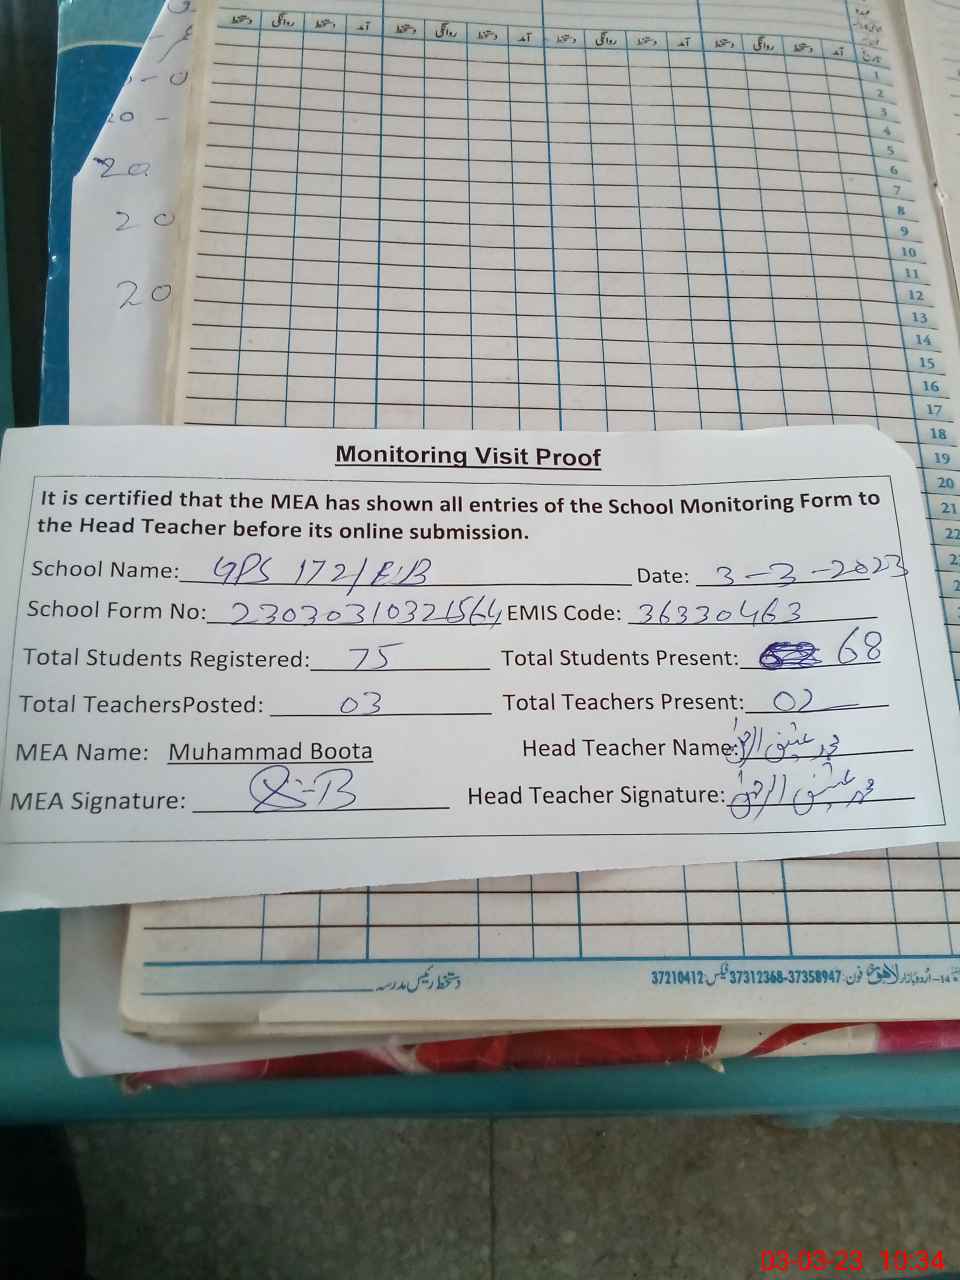 دستخط روانگی دستخط آمد دستخط روانگی دستخط آمد دستخط روانگی دستخط آمد دستخط روانگی دستخط آمد تاریخ
1
2
3
4
5
6
7
8
9
10
11
12
13
14
15
16
17
18
19
20
21
22
20
20
20
20
Monitoring Visit Proof
It is certified that the MEA has shown all entries of the School Monitoring Form to
the Head Teacher before its online submission.
School Name: GPS 172/E.B Date: 3-3-2023
School Form No: 23030310321564 EMIS Code: 36330463
Total Students Registered: 75 Total Students Present: 68
Total TeachersPosted: 03 Total Teachers Present: 02
MEA Name: Muhammad Boota Head Teacher Name: محمد عتیق الرحمٰن
MEA Signature: Head Teacher Signature: محمد عتیق الرحمٰن
دستخط رئیس مدرسہ
14-اُردو بازار لاہور فون: 37312368-37358947 فیکس: 37210412
03-03-23 10:34